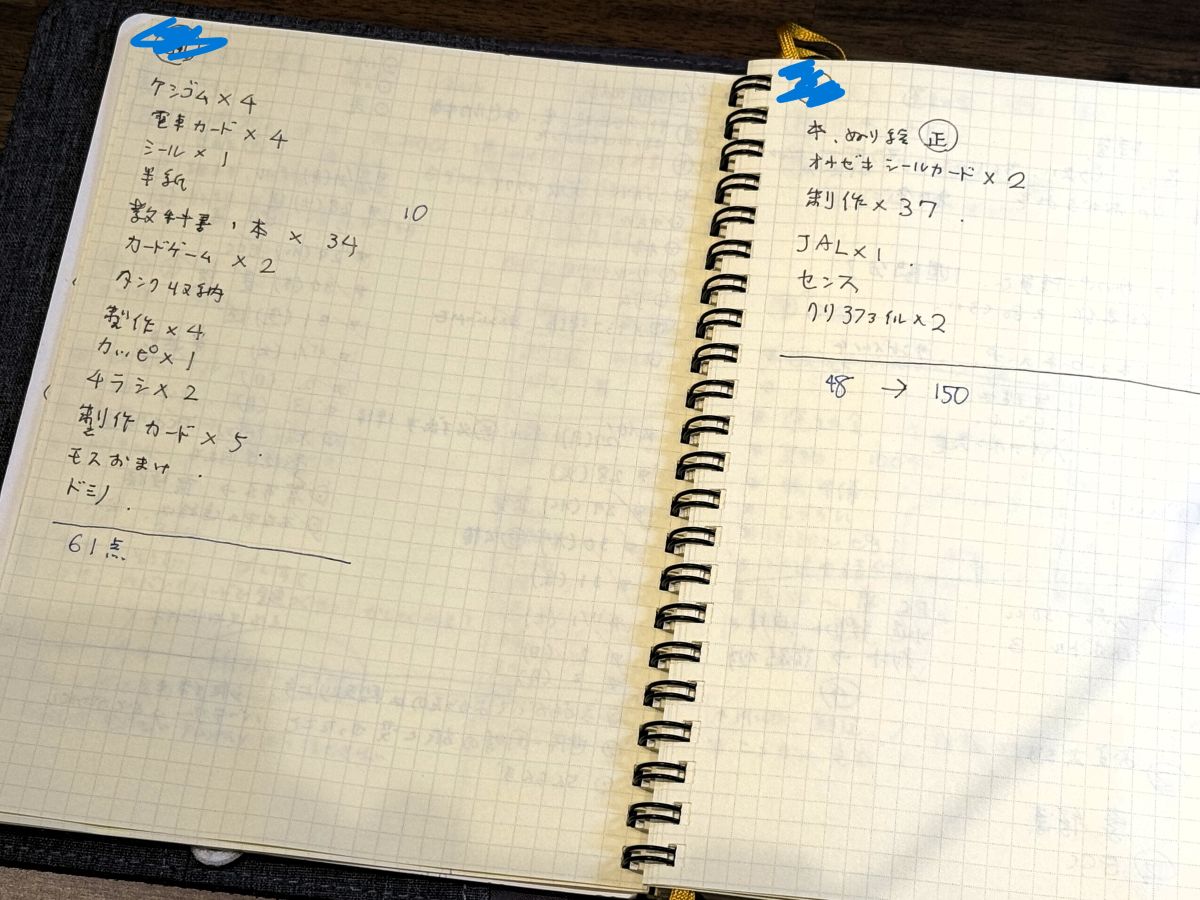 ケシゴム×4
電車カード×4
シール×1
半紙
教科書、本 × 34
10
カードゲーム ×2
タンク収納
製作×4
カッピ×1
チラシ×2
製作カード×5.
モスおまけ.
ドミノ.
61点
本、ぬり絵 正
オナゼキシールカード×2
制作×37.
JAL×1.
センス
クリアファイル×2
48 → 150